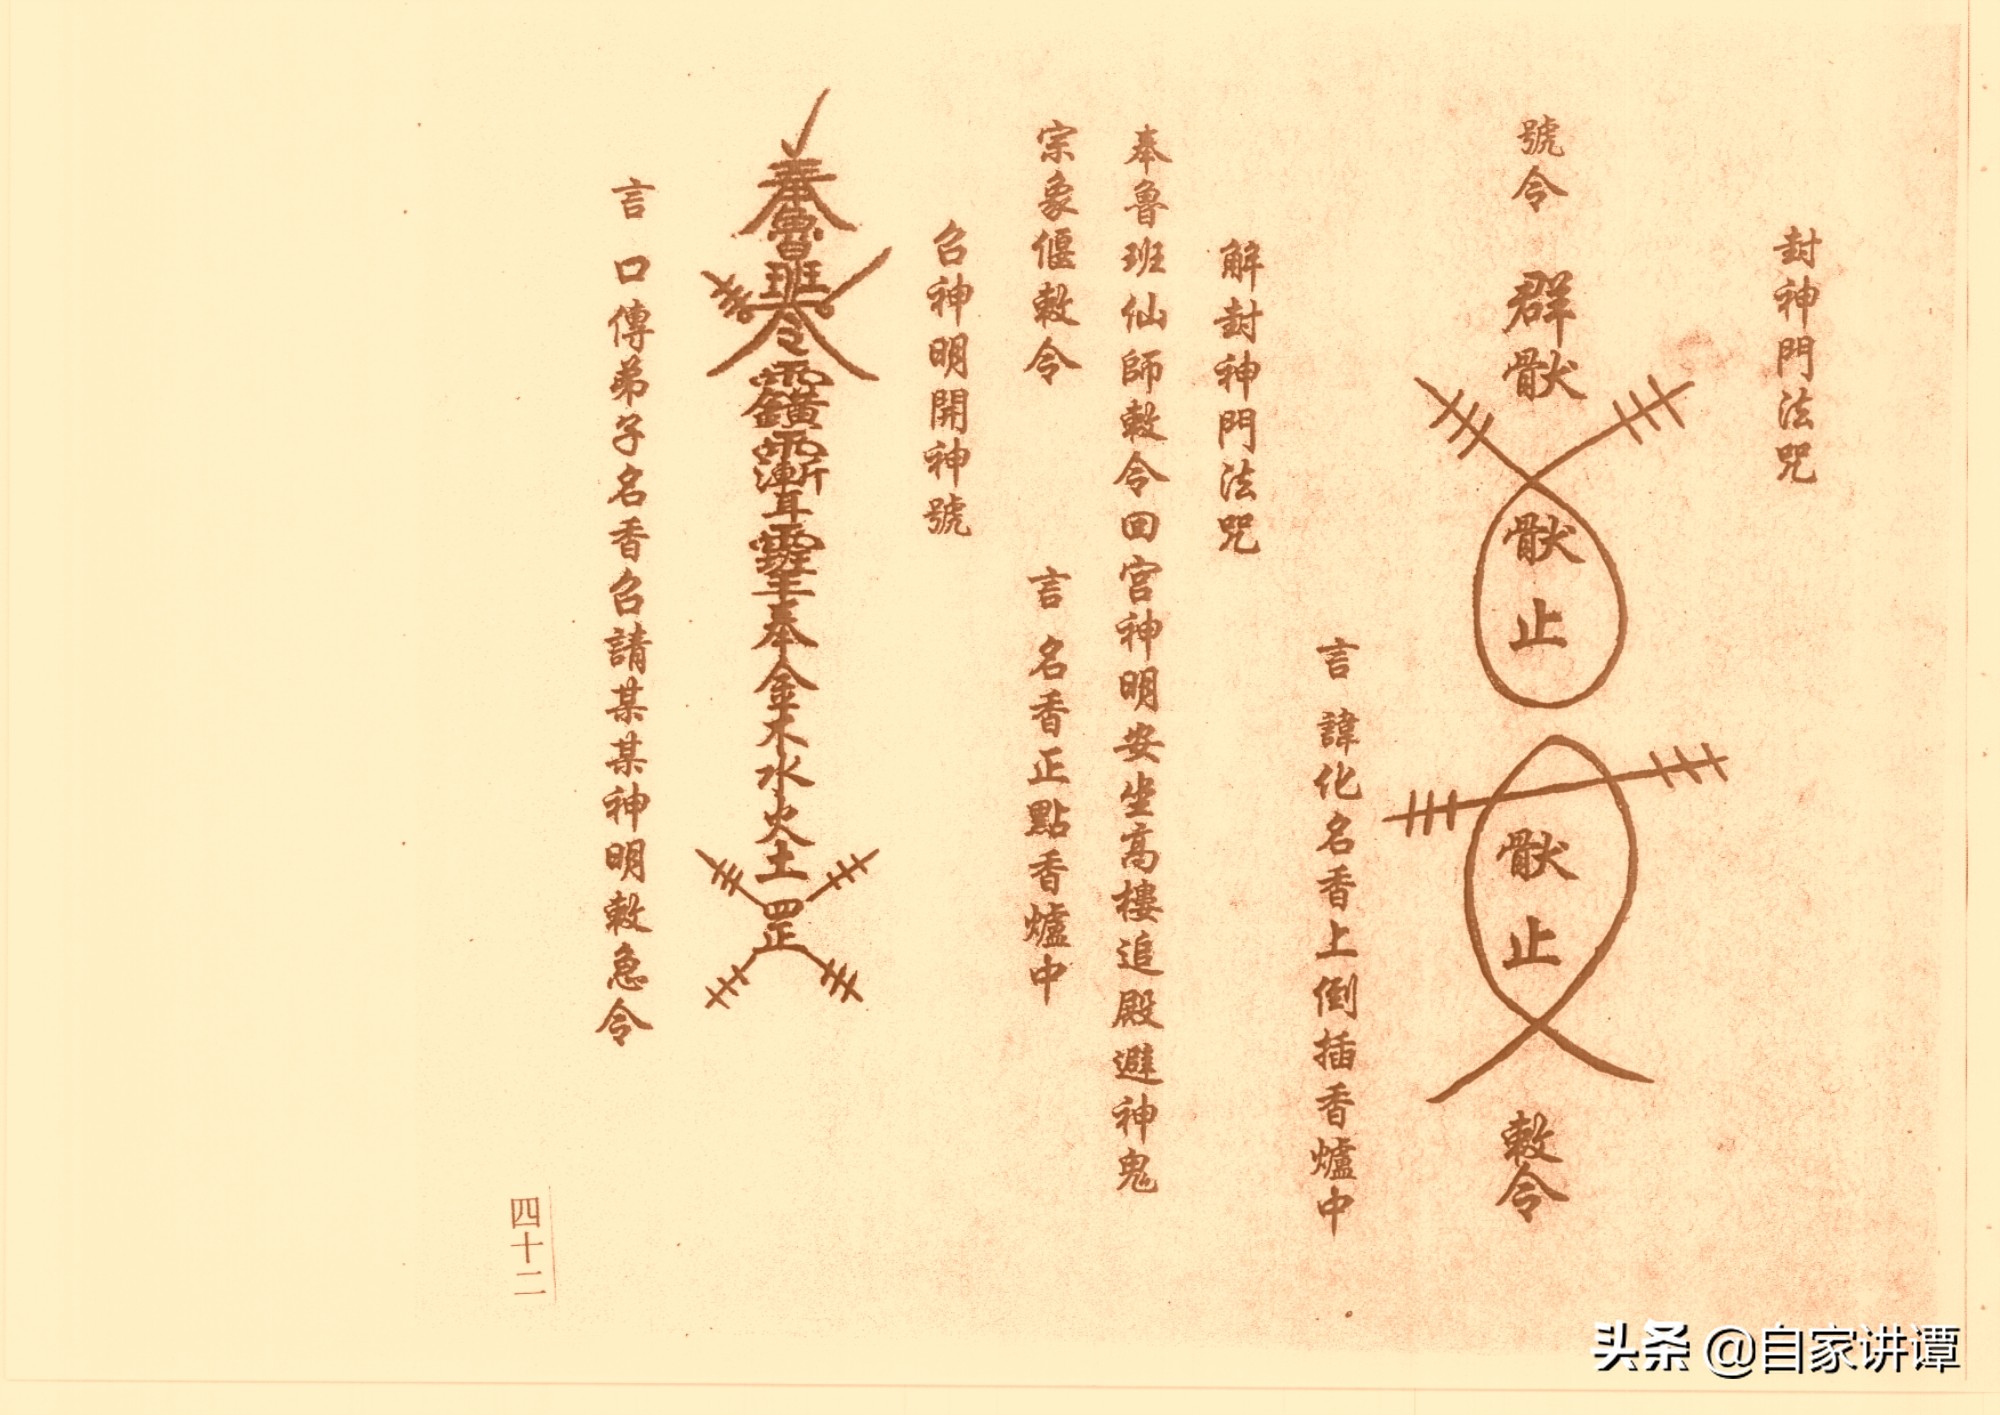 封神門法咒
號令 群猷 猷止 猷止 敕令
言 諱化名香上倒插香爐中
解封神門法咒
奉魯班仙師敕令回宫神明安坐高樓追殿避神鬼
宗象偃敕令 言 名香正點香爐中
召神明開神號
奉魯班令 奉金木水火土罡
言 口傳弟子名香召請某某神明敕急令
四十二
头条 @自家讲谭